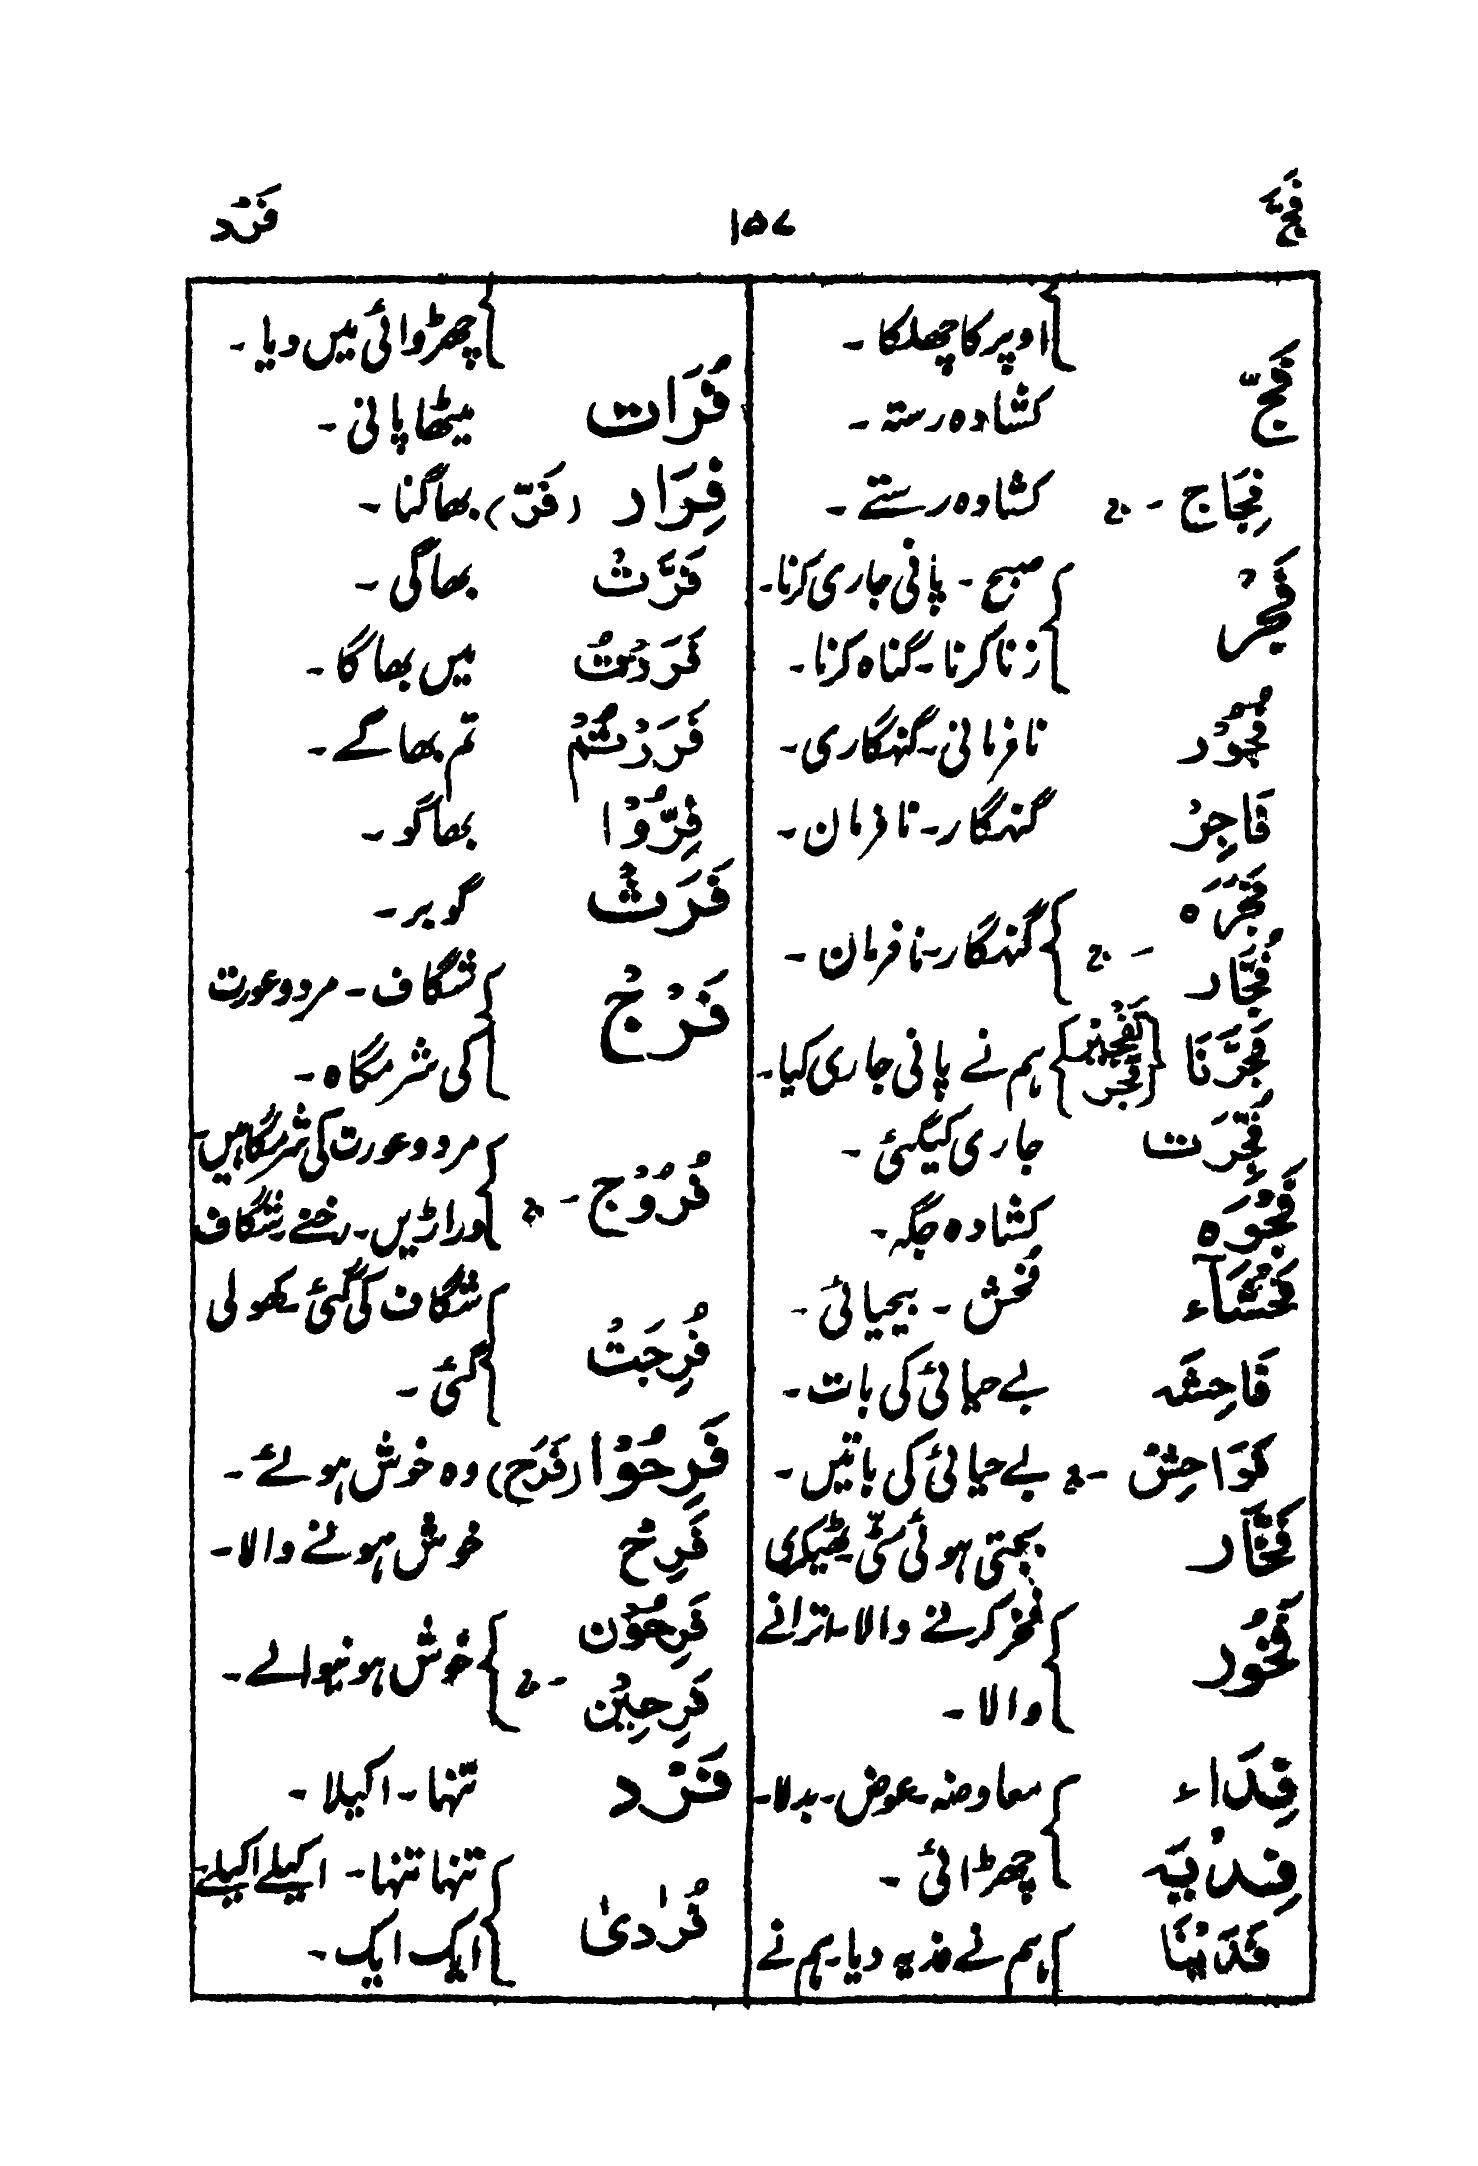 فَجَّ ۱۵۷ فَرْد
اوپر کا چھلکا ۔
فَجّ کشادہ رستہ ۔
فِجَاج ۔ ج کشادہ رستے ۔
فَجْر صبح ۔ پانی جاری کرنا ۔
زنا کرنا ۔ گناہ کرنا ۔
فُجُوْر نافرمانی ۔ گنہگاری ۔
فَاجِرْ گنہگار ۔ نافرمان ۔
فَجَرَہ
فُجَّار ۔ ج گنہگار ۔ نافرمان ۔
فَجَّرْنَا ہم نے پانی جاری کیا ۔
فُجِّرَت جاری کیگئی ۔
فَجْوَہ کشادہ جگہ ۔
فَحْشَآء فُحش ۔ بیحیائی ۔
فَاحِشَہ بے حیائی کی بات ۔
فَوَاحِشْ ۔ ج بے حیائی کی باتیں ۔
فَخَّار بجتی ہوئی مٹّی ۔ ٹھیکری
فَخُوْر فخر کرنے والا ۔ اترانے
والا ۔
فِدَاء معاوضہ ۔ عوض ۔ بدلا ۔
فِدْيَہ چھڑائی ۔
فَدَيْنَا ہم نے فدیہ دیا ۔ ہم نے
چھڑوائی میں دیا ۔
فُرَات میٹھا پانی ۔
فِرَار (فَرّ) بھاگنا ۔
فَرَّتْ بھاگی ۔
فَرَرْتُ میں بھاگا ۔
فَرَرْتُمْ تم بھاگے ۔
فِرُّوْا بھاگو ۔
فَرَثْ گوبر ۔
فَرْجْ شگاف ۔ مرد و عورت
کی شرمگاہ ۔
فُرُوْج ۔ ج مرد و عورت کی شرمگاہیں ۔
دراڑیں ۔ رخنے ۔ شگاف
فُرِجَتْ شگاف کی گئی ۔ کھولی
گئی ۔
فَرِحُوْا (فَرَح) وہ خوش ہوئے ۔
فَرِحْ خوش ہونے والا ۔
فَرِحُوْن
فَرِحِيْن ۔ ج خوش ہونیوالے ۔
فَرْد تنہا ۔ اکیلا ۔
فُرَادیٰ تنہا تنہا ۔ اکیلے اکیلے ۔
ایک ایک ۔